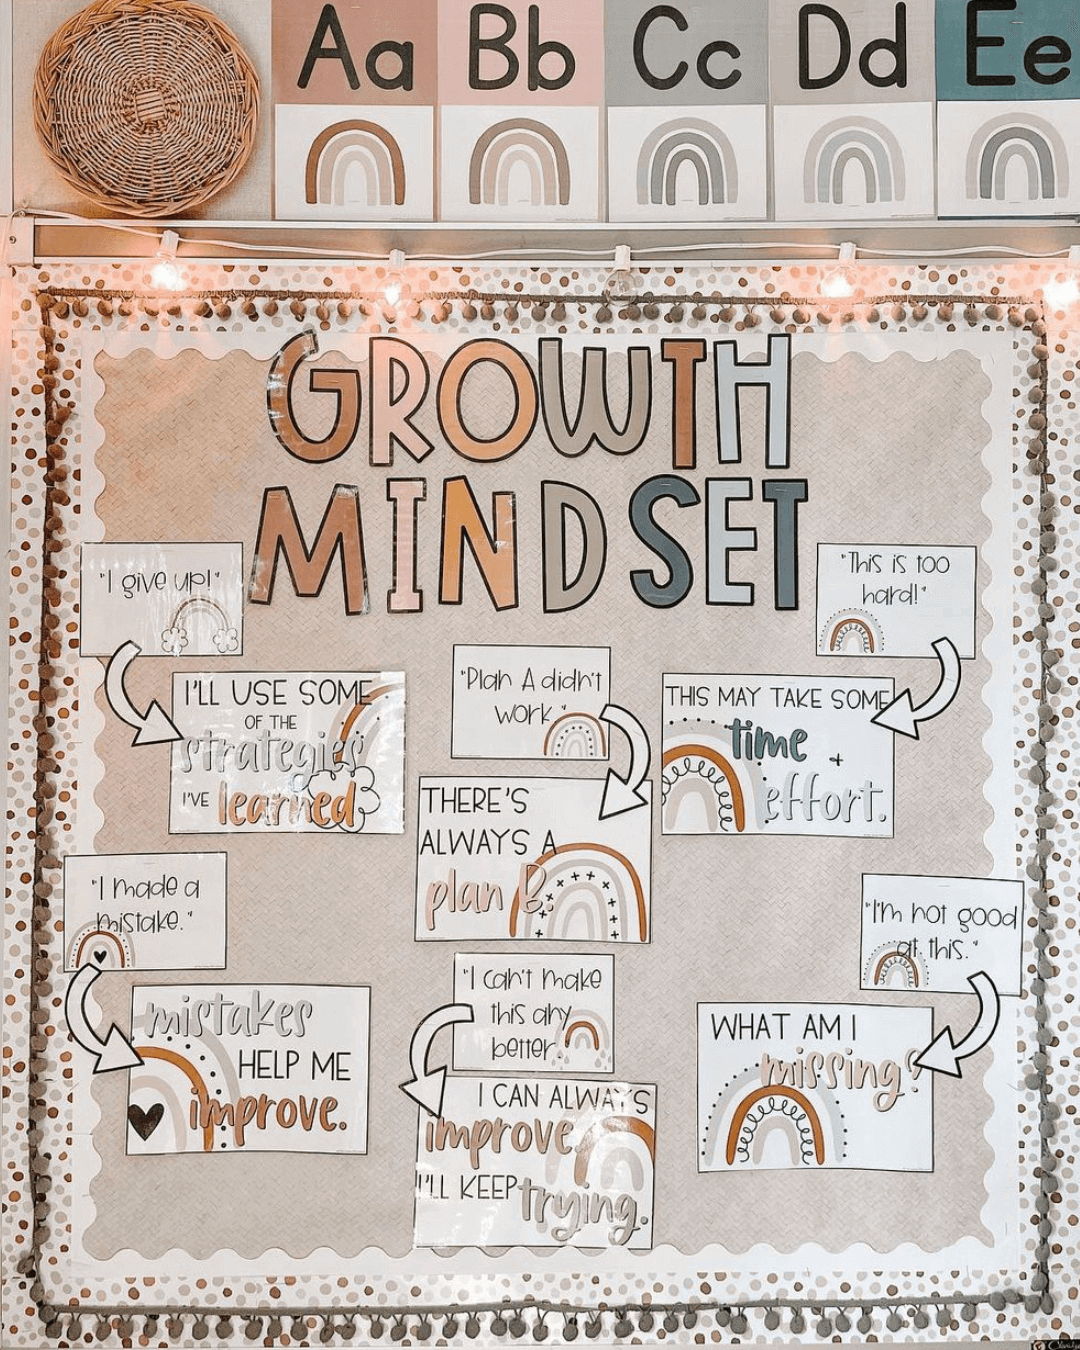 Aa
Bb
Cc
Dd
Ee
GROWTH
MINDSET
"I give up!"
I'LL USE SOME
OF THE
strategies
I'VE learned
"Plan A didn't
work."
THERE'S
ALWAYS A
plan B.
"This is too
hard!"
THIS MAY TAKE SOME
time +
effort.
"I made a
mistake."
mistakes
HELP ME
improve.
"I can't make
this any
better."
I CAN ALWAYS
improve
I'LL KEEP trying.
"I'm not good
at this."
WHAT AM I
missing?